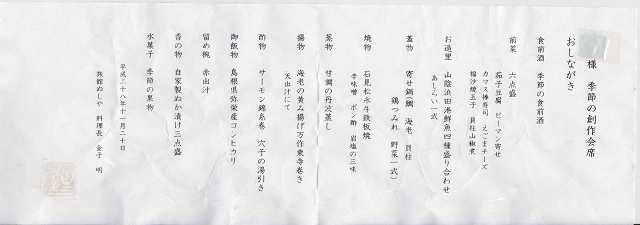 様　季節の創作会席
おしながき
食前酒　季節の食前酒
前菜　六点盛
茄子豆腐　ピーマン寄せ
カマス棒寿司　えごまチーズ
福沙焼玉子　貝柱山椒煮
お造里　山陰浜田港鮮魚四種盛り合わせ
あしらい一式
蓋物　寄せ鍋（鯛　海老　貝柱
鶏つみれ　野菜一式）
焼物　石見松永牛鉄板焼
辛味噌　ポン酢　岩塩の三味
蒸物　甘鯛の丹波蒸し
揚物　海老の黄み揚げ万作東寺巻き
天出汁にて
酢物　サーモン錦糸巻　穴子の湯引き
御飯物　島根県弥栄産コシヒカリ
留め椀　赤出汁
香の物　自家製ぬか漬け三点盛
水菓子　季節の果物
平成二十八年十一月二十日
旅館ぬしや　料理長　金子　明